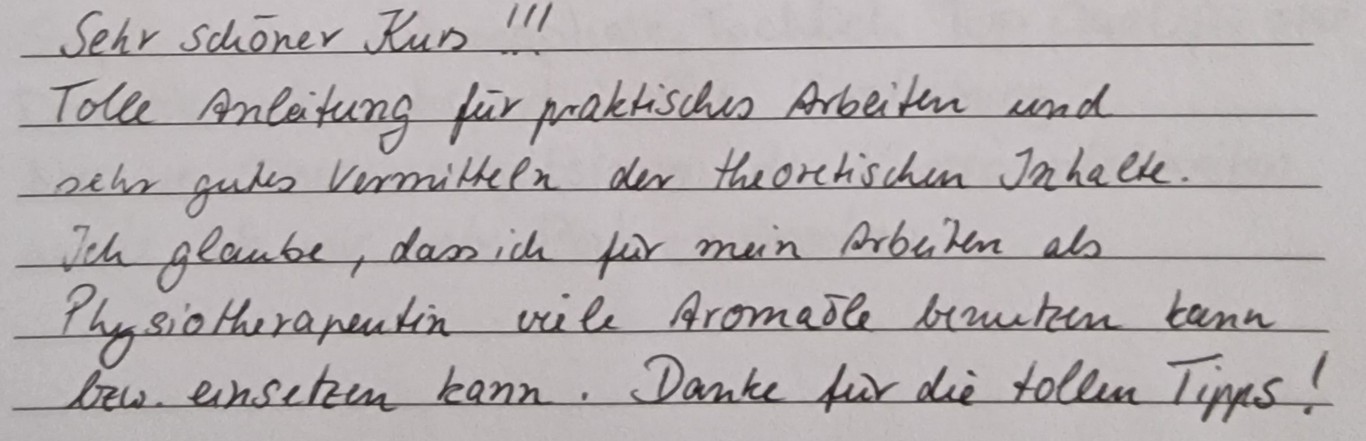 Sehr schöner Kurs !!!
Tolle Anleitung für praktisches Arbeiten und
sehr gutes Vermitteln der theoretischen Inhalte.
Ich glaube, dass ich für mein Arbeiten als
Physiotherapeutin viele Aromaöle benutzen kann
bzw. einsetzen kann. Danke für die tollen Tipps!